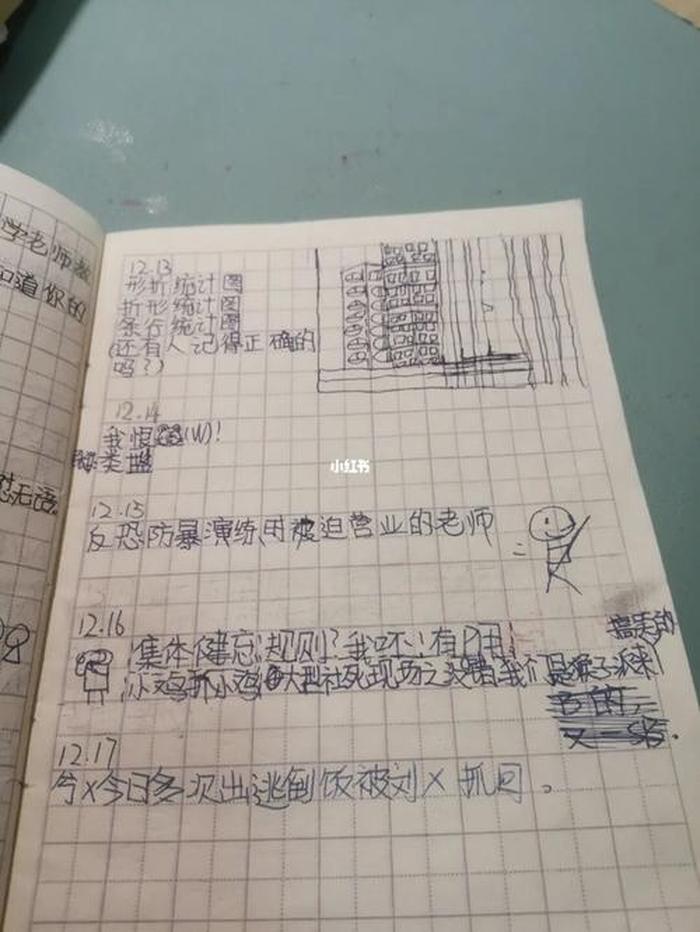 学老师教
知道你的
无语
12.13
形折统计图
折形统计图
条行统计图
(还有人记得正确的
吗?)
12.14
我恨(W)!
类
小红书
12.15
反恐防暴演练,因被迫营业的老师
12.16
集体健忘规则?我吥!有用!
搞笑的
小鸡抓小鸡 大型社死现场之没错我们是猴子派来
12.17
兮X今日多次出逃倒饭被刘X抓回。